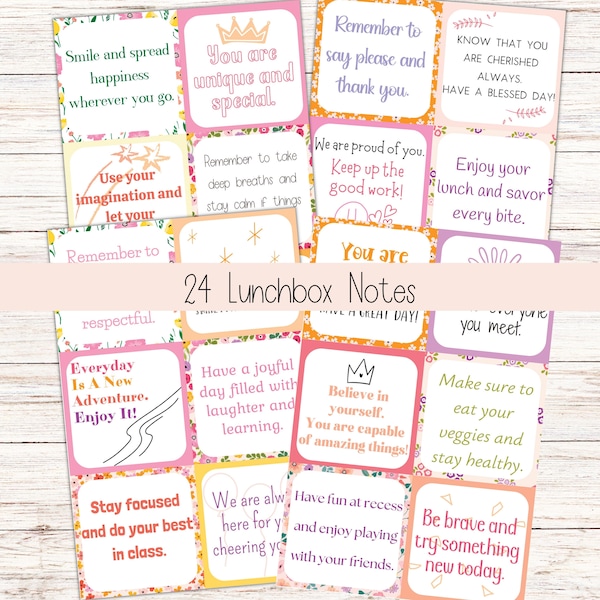 Smile and spread
happiness
wherever you go.
You are
unique and
special.
Remember to
say please and
thank you.
KNOW THAT YOU
ARE CHERISHED
ALWAYS.
HAVE A BLESSED DAY!
Use your
imagination and
let your
Remember to take
deep breaths and
stay calm if things
We are proud of you.
Keep up the
good work!
Enjoy your
lunch and savor
every bite.
Remember to
You are
24 Lunchbox Notes
respectful.
HAVE A GREAT DAY!
you meet.
Everyday
Is A New
Adventure.
Enjoy It!
Have a joyful
day filled with
laughter and
learning.
Believe in
yourself.
You are capable
of amazing things!
Make sure to
eat your
veggies and
stay healthy.
Stay focused
and do your best
in class.
We are
here for
cheering
Have fun at recess
and enjoy playing
with your friends.
Be brave and
try something
new today.